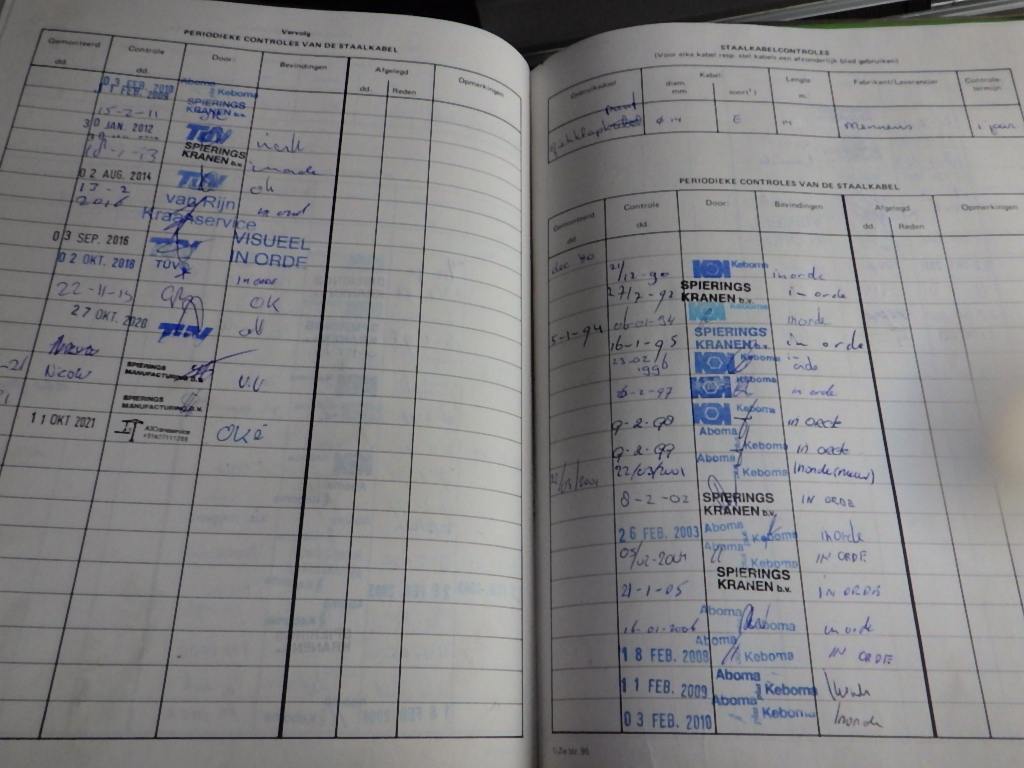 Vervolg
PERIODIEKE CONTROLES VAN DE STAALKABEL
Gemonteerd Controle Door: Bevindingen Afgelegd Opmerkingen
dd. dd. dd. Reden
03 FEB. 2010 Aboma Keboma
FEB. 2009
15-2-11 SPIERINGS KRANEN b.v.
30 JAN. 2012 TÜV
SPIERINGS KRANEN b.v. in orde
02 AUG. 2014 TÜV ok
13-2 2016 van Rijn Kraanservice in ord
03 SEP. 2016 VISUEEL IN ORDE
02 OKT. 2018 TÜV in orde
22-11-19 OK
27 OKT. 2020 TÜV ok
SPIERINGS MANUFACTURING B.V. V.V
Nicow
SPIERINGS MANUFACTURING B.V.
11 OKT 2021 OKé
STAALKABELCONTROLES
(Voor elke kabel resp. stel kabels een afzonderlijk blad gebruiken)
Gebruiksdoel Kabel: Lengte Fabrikant/Leverancier Controle-termijn
diam. mm soort¹) m.
ø 14 E m Mennens 1 jaar
PERIODIEKE CONTROLES VAN DE STAALKABEL
Gemonteerd Controle Door: Bevindingen Afgelegd Opmerkingen
dd. dd. dd. Reden
dec 90 21/12-90 Keboma in orde
27/7-92 SPIERINGS KRANEN b.v. in orde
5-1-94 06-01-94 Keboma in orde
16-1-95 SPIERINGS KRANEN b.v. in orde
23-02/1996 Keboma in orde
Keboma in orde
9-2-98 Keboma in orde
9-2-99 Aboma Keboma in orde
22/03/2001 Aboma Keboma In orde (nieuw)
8-2-02 SPIERINGS KRANEN b.v. IN ORDE
26 FEB. 2003 Aboma Keboma in orde
05/02-2004 Aboma Keboma IN ORDE
21-1-05 SPIERINGS KRANEN b.v. IN ORDE
16-01-2006 Aboma Keboma in orde
18 FEB. 2009 Aboma Keboma IN ORDE
11 FEB. 2009 Aboma Keboma
03 FEB. 2010 Aboma Keboma In orde